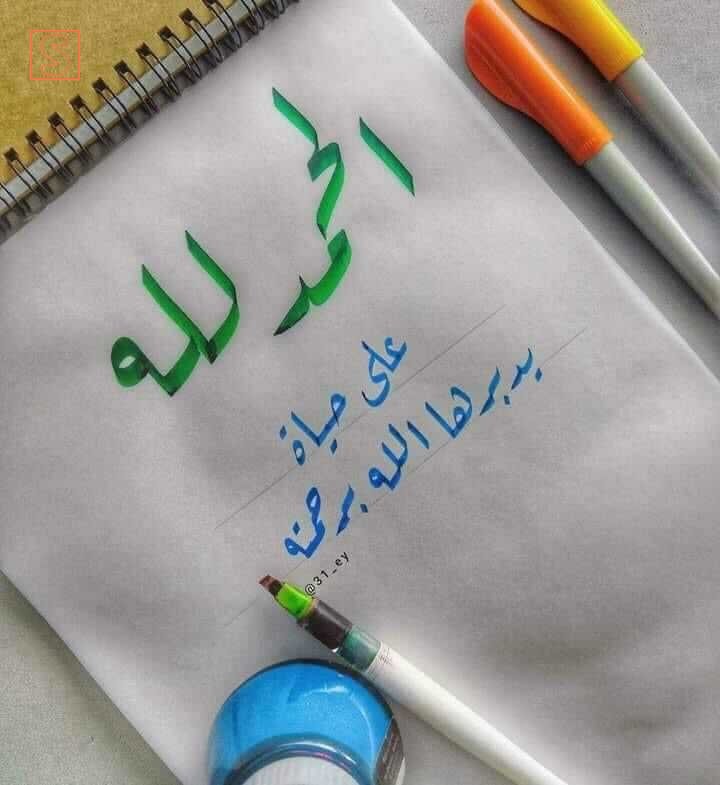 الحمد لله
على حياة
يدبرها الله برحمته
@31_ey